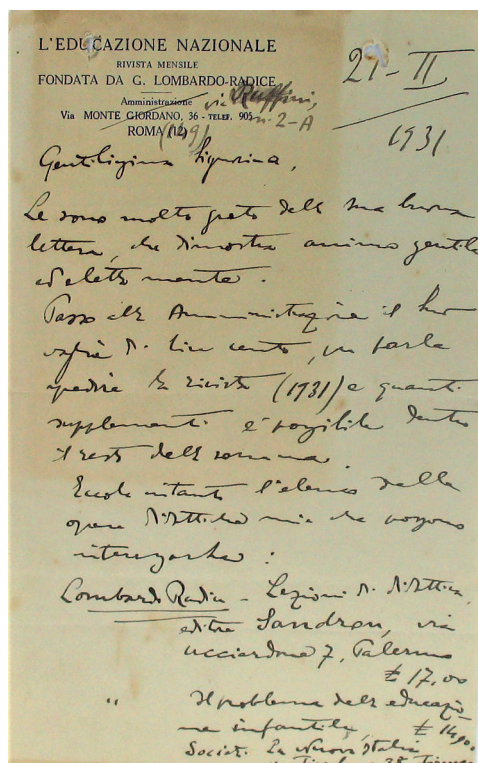 L'EDUCAZIONE NAZIONALE
RIVISTA MENSILE
FONDATA DA G. LOMBARDO-RADICE
Amministrazione
via Ruffini,
Via MONTE GIORDANO, 36 - TELEF. 905
n. 2-A
ROMA (12)
(149)
21-II
1931
Gentilissima Signorina,
Le sono molto grato della sua buona
lettera, che dimostra animo gentile
ed eletta mente.
Passo alla Amministrazione il suo
vaglia di lire cento, per farle
spedire la rivista (1931) e quanti
supplementi è possibile dentro
il resto della somma.
Eccole intanto l'elenco delle
opere didattiche mie che possono
interessarla:
Lombardo Radice - Lezioni di didattica,
editore Sandron, via
Ucciardone 7, Palermo
£ 17,00
" Il problema della educazio-
ne infantile, £ 14,90.
Società La Nuova Italia